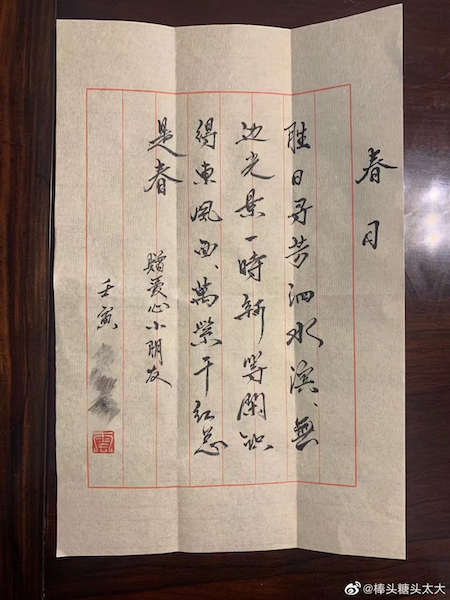 春日
胜日寻芳泗水滨、無
边光景一時新等閑识
得東風面、萬紫千红总
是春
赠爱心小朋友
壬寅
@棒头糖头太大